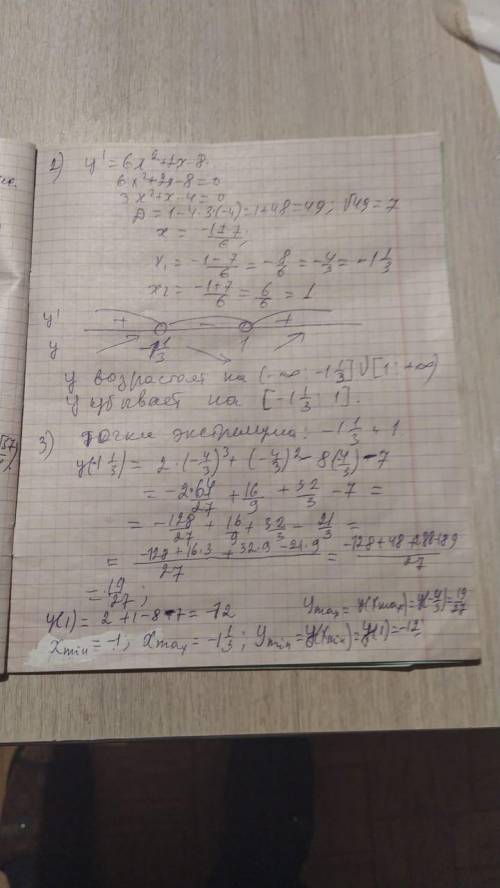 2) y' = 6x²+2x-8.
6x²+2x-8=0
3x²+x-4=0
D = 1-4·3·(-4)=1+48=49; √49=7
x = -1±7/6;
x₁ = -1-7/6 = -8/6 = -4/3 = -1 1/3
x₂ = -1+7/6 = 6/6 = 1
y' + - +
y -1 1/3 1
y возрастает на (-∞; -1 1/3] U [1; +∞)
y убывает на [-1 1/3; 1].
3) точки экстремума: -1 1/3 и 1
y(-1 1/3) = 2·(-4/3)³+(-4/3)²-8(4/3)-7
= -2·64/27 + 16/9 + 32/3 - 7 =
= -128/27 + 16/9 + 32/3 - 21/3 =
= -128+16·3+32·9-21·9/27 = -128+48+288-189/27
= 19/27;
y(1) = 2+1-8-7 = -12
y max = y(x max) = y(-4/3) = 19/27
x min = -1; x max = -1 1/3; y min = y(x min) = y(1) = -12